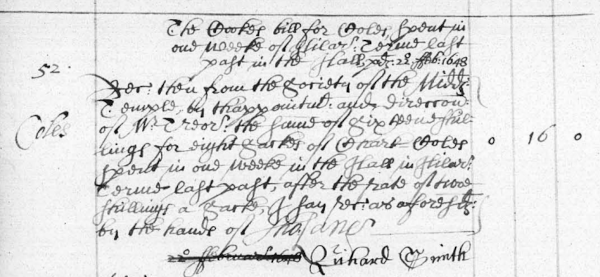 The Cookes bill for Coles spent in
one weeke of Hilar: Terme last
past in the Hall pd: 22 ffeb: 1648
52.
Rec: then from the Society of the Midd:
Temple, by thappointmt: and direccon
Coles
of Mr: Trẽor: the some of Sixteene shil=
lings for eight Sackes of Chark Coles
o 16 o
spent in one weeke in the Hall in Hilar:
Terme last past, after the rate of twoe
shillings a Sacke, I say rec: as aforesd:
by the hands of
22o ffebruar: 1648 Richard Smith